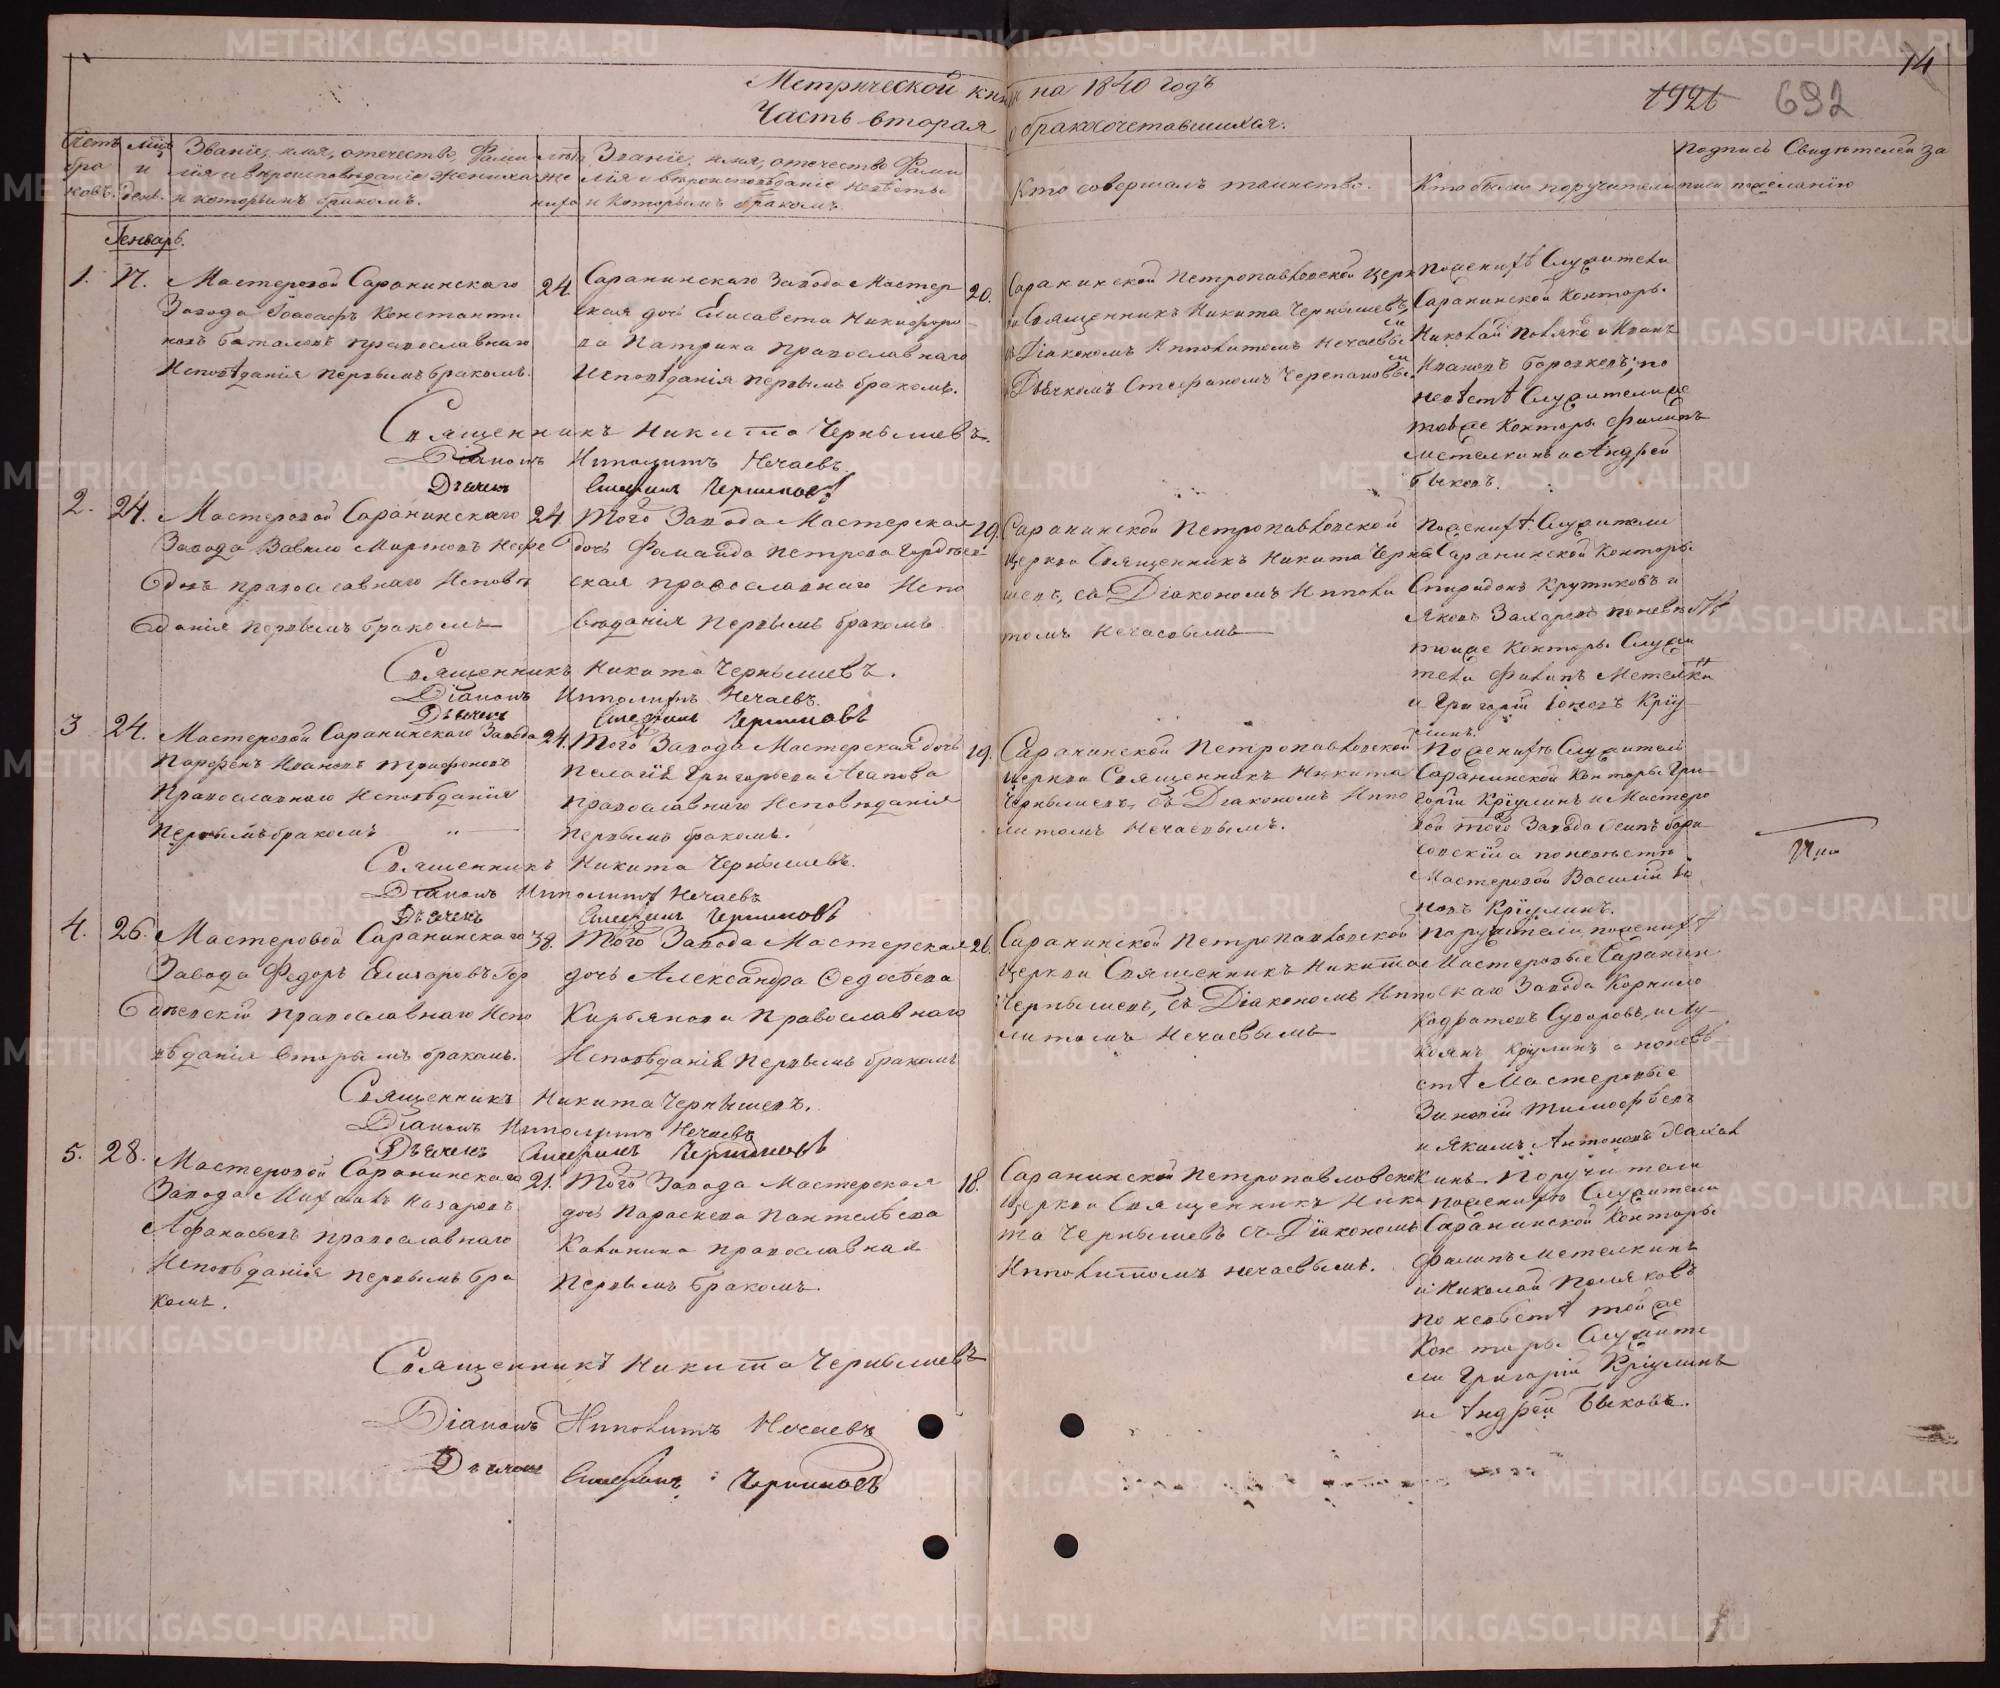 METRIKI.GASO-URAL.RU
74
Метрической книги на 1840 годъ
1926 692
Часть вторая о бракосочетавшихся.
Счетъ браковъ.
Мцъ и день.
Званіе, имя, отечество, фами
лія и вѣроисповѣданіе жениха
и которымъ бракомъ.
лѣта же
ниха
Званіе, имя, отечество фами
лія и вѣроисповѣданіе невѣсты
и которымъ бракомъ.
Кто совершалъ таинство.
Кто были поручители
Подпись Свидѣтелей за
писи по желанію
Генварь.
1. 17.
Мастеровой Саранинскаго
Завода Іоасафъ Константи
новъ Баталовъ православнаго
Исповѣданія первымъ бракомъ.
24.
Саранинскаго Завода Мастер
ская дочь Елисавета Никифоро
ва Патрина православнаго
Исповѣданія первымъ бракомъ.
20.
Саранинской Петропавловской Церк
ви Священникъ Никита Чернышевъ,
съ Діакономъ Ипполитомъ Нечаевы
Дьячкомъ Стефаномъ Черепановы
По женихѣ Служители
Саранинской Конторы
Николай Поляко и Иванъ
Ивановъ Боровковъ; по
невѣстѣ Служители же
тое же Конторы Филипъ
Метелкинъ и Андрей
Быковъ.
Священникъ Никита Чернышевъ.
Діаконъ Ипполитъ Нечаевъ.
Дьячекъ Стефанъ Черепановъ
2. 24.
Мастеровой Саранинскаго
Завода Вавило Мироновъ Нефе
довъ православнаго Исповѣ
данія первымъ бракомъ
24
Того Завода Мастерская
дочь Фаина Петрова Гордѣев
ская православнаго Испо
вѣданія первымъ бракомъ
19.
Саранинской Петропавловской
Церкви Священникъ Никита Черны
шевъ, съ Діакономъ Ипполи
томъ Нечаевымъ
По женихѣ Служители
Саранинской Конторы
Спиридонъ Крутиковъ и
Яковъ Захаровъ по невѣстѣ
тое же Конторы Служи
тели Филипъ Метелкин
и Григорій Іоновъ Кріу
линъ.
Священникъ Никита Чернышевъ.
Діаконъ Ипполитъ Нечаевъ.
Дьячекъ Стефанъ Черепановъ
3 24.
Мастеровой Саранинскаго Завода
Парфенъ Ивановъ Трифоновъ
Православнаго Исповѣданія
первымъ бракомъ
24.
Того Завода Мастерская дочь
Пелагія Григорьева Агапова
православнаго Исповѣданія
первымъ бракомъ.
19.
Саранинской Петропавловской
Церкви Священникъ Никита
Чернышевъ, съ Діакономъ Иппо
литомъ Нечаевымъ.
По женихѣ Служители
Саранинской Конторы Гри
горій Кріулинъ и Мастеро
вой того Завода Осипъ Бори
совскій а по невѣстѣ
Мастеровой Василій
Кріулинъ.
Священникъ Никита Чернышевъ.
Діаконъ Ипполитъ Нечаевъ
Дьячекъ Стефанъ Черепановъ
4. 26.
Мастеровой Саранинскаго
Завода Федоръ Елизаровъ Гор
дѣевскій православнаго Испо
вѣданія вторымъ бракомъ.
38.
Того Завода Мастерская
дочь Александра Федосѣева
Кирьянова Православнаго
Исповѣданія первымъ бракомъ
26.
Саранинской Петропавловской
Церкви Священникъ Никита
Чернышевъ, съ Діакономъ Иппо
литомъ Нечаевымъ
Поручители по женихѣ
Мастеровые Саранин
скаго Завода Корнило
Кодратовъ Суворовъ, и Лу
коянъ Кріулинъ а по невѣ
стѣ Мастеровые
Зиновій Тимофѣевъ
и Якимъ Антоновъ
Священникъ Никита Чернышевъ.
Діаконъ Ипполитъ Нечаевъ
Дьячекъ Стефанъ Черепановъ
5. 28.
Мастеровой Саранинскаго
Завода Михаилъ Назаровъ
Афанасьевъ православнаго
Исповѣданія первымъ бра
комъ.
21.
Того Завода Мастерская
дочь Параскева Пантелѣева
Каланина православная
первымъ бракомъ.
18.
Саранинской Петропавловской
Церкви Священникъ Ники
та Чернышевъ съ Діакономъ
Ипполитомъ Нечаевымъ.
Поручители
по женихѣ Служители
Саранинской Конторы
Филипъ Метелкинъ
и Николай Поляковъ
по невѣстѣ той же
Конторы Служите
ли Григорій Кріулинъ
и Андрей Быковъ.
Священникъ Никита Чернышевъ
Діаконъ Ипполитъ Нечаевъ
Дьячекъ Стефанъ Черепановъ